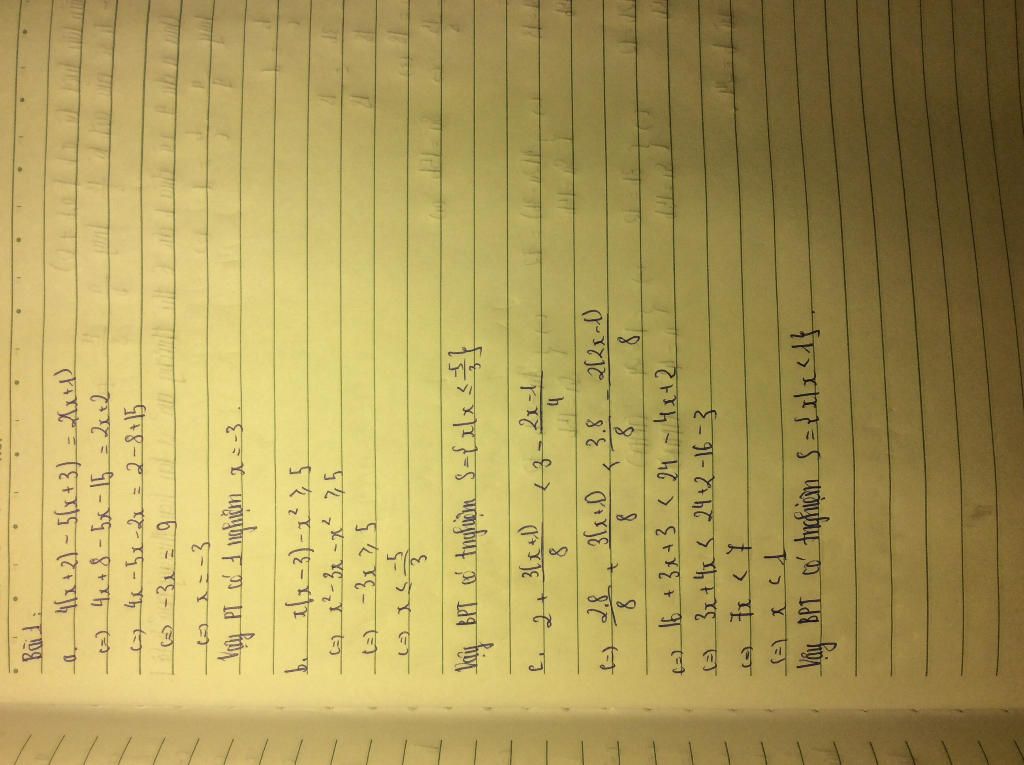 Bài 1:
a. 4(x+2) - 5(x+3) = 2(x+1)
<=> 4x+8-5x-15 = 2x+2
<=> 4x-5x-2x = 2-8+15
<=> -3x = 9
<=> x = -3
Vậy PT có 1 nghiệm x = -3.
b. x(x-3) - x² ≥ 5
<=> x²-3x-x² ≥ 5
<=> -3x ≥ 5
<=> x ≤ -5/3
Vậy BPT có nghiệm S={x|x ≤ -5/3}
c. 2 + 3(x+1)/8 < 3 - (2x-1)/4
<=> 2.8/8 + 3(x+1)/8 < 3.8/8 - 2(2x-1)/8
<=> 16 + 3x+3 < 24 - 4x+2
<=> 3x+4x < 24+2-16-3
<=> 7x < 7
<=> x < 1
Vậy BPT có nghiệm S={x|x<1}.